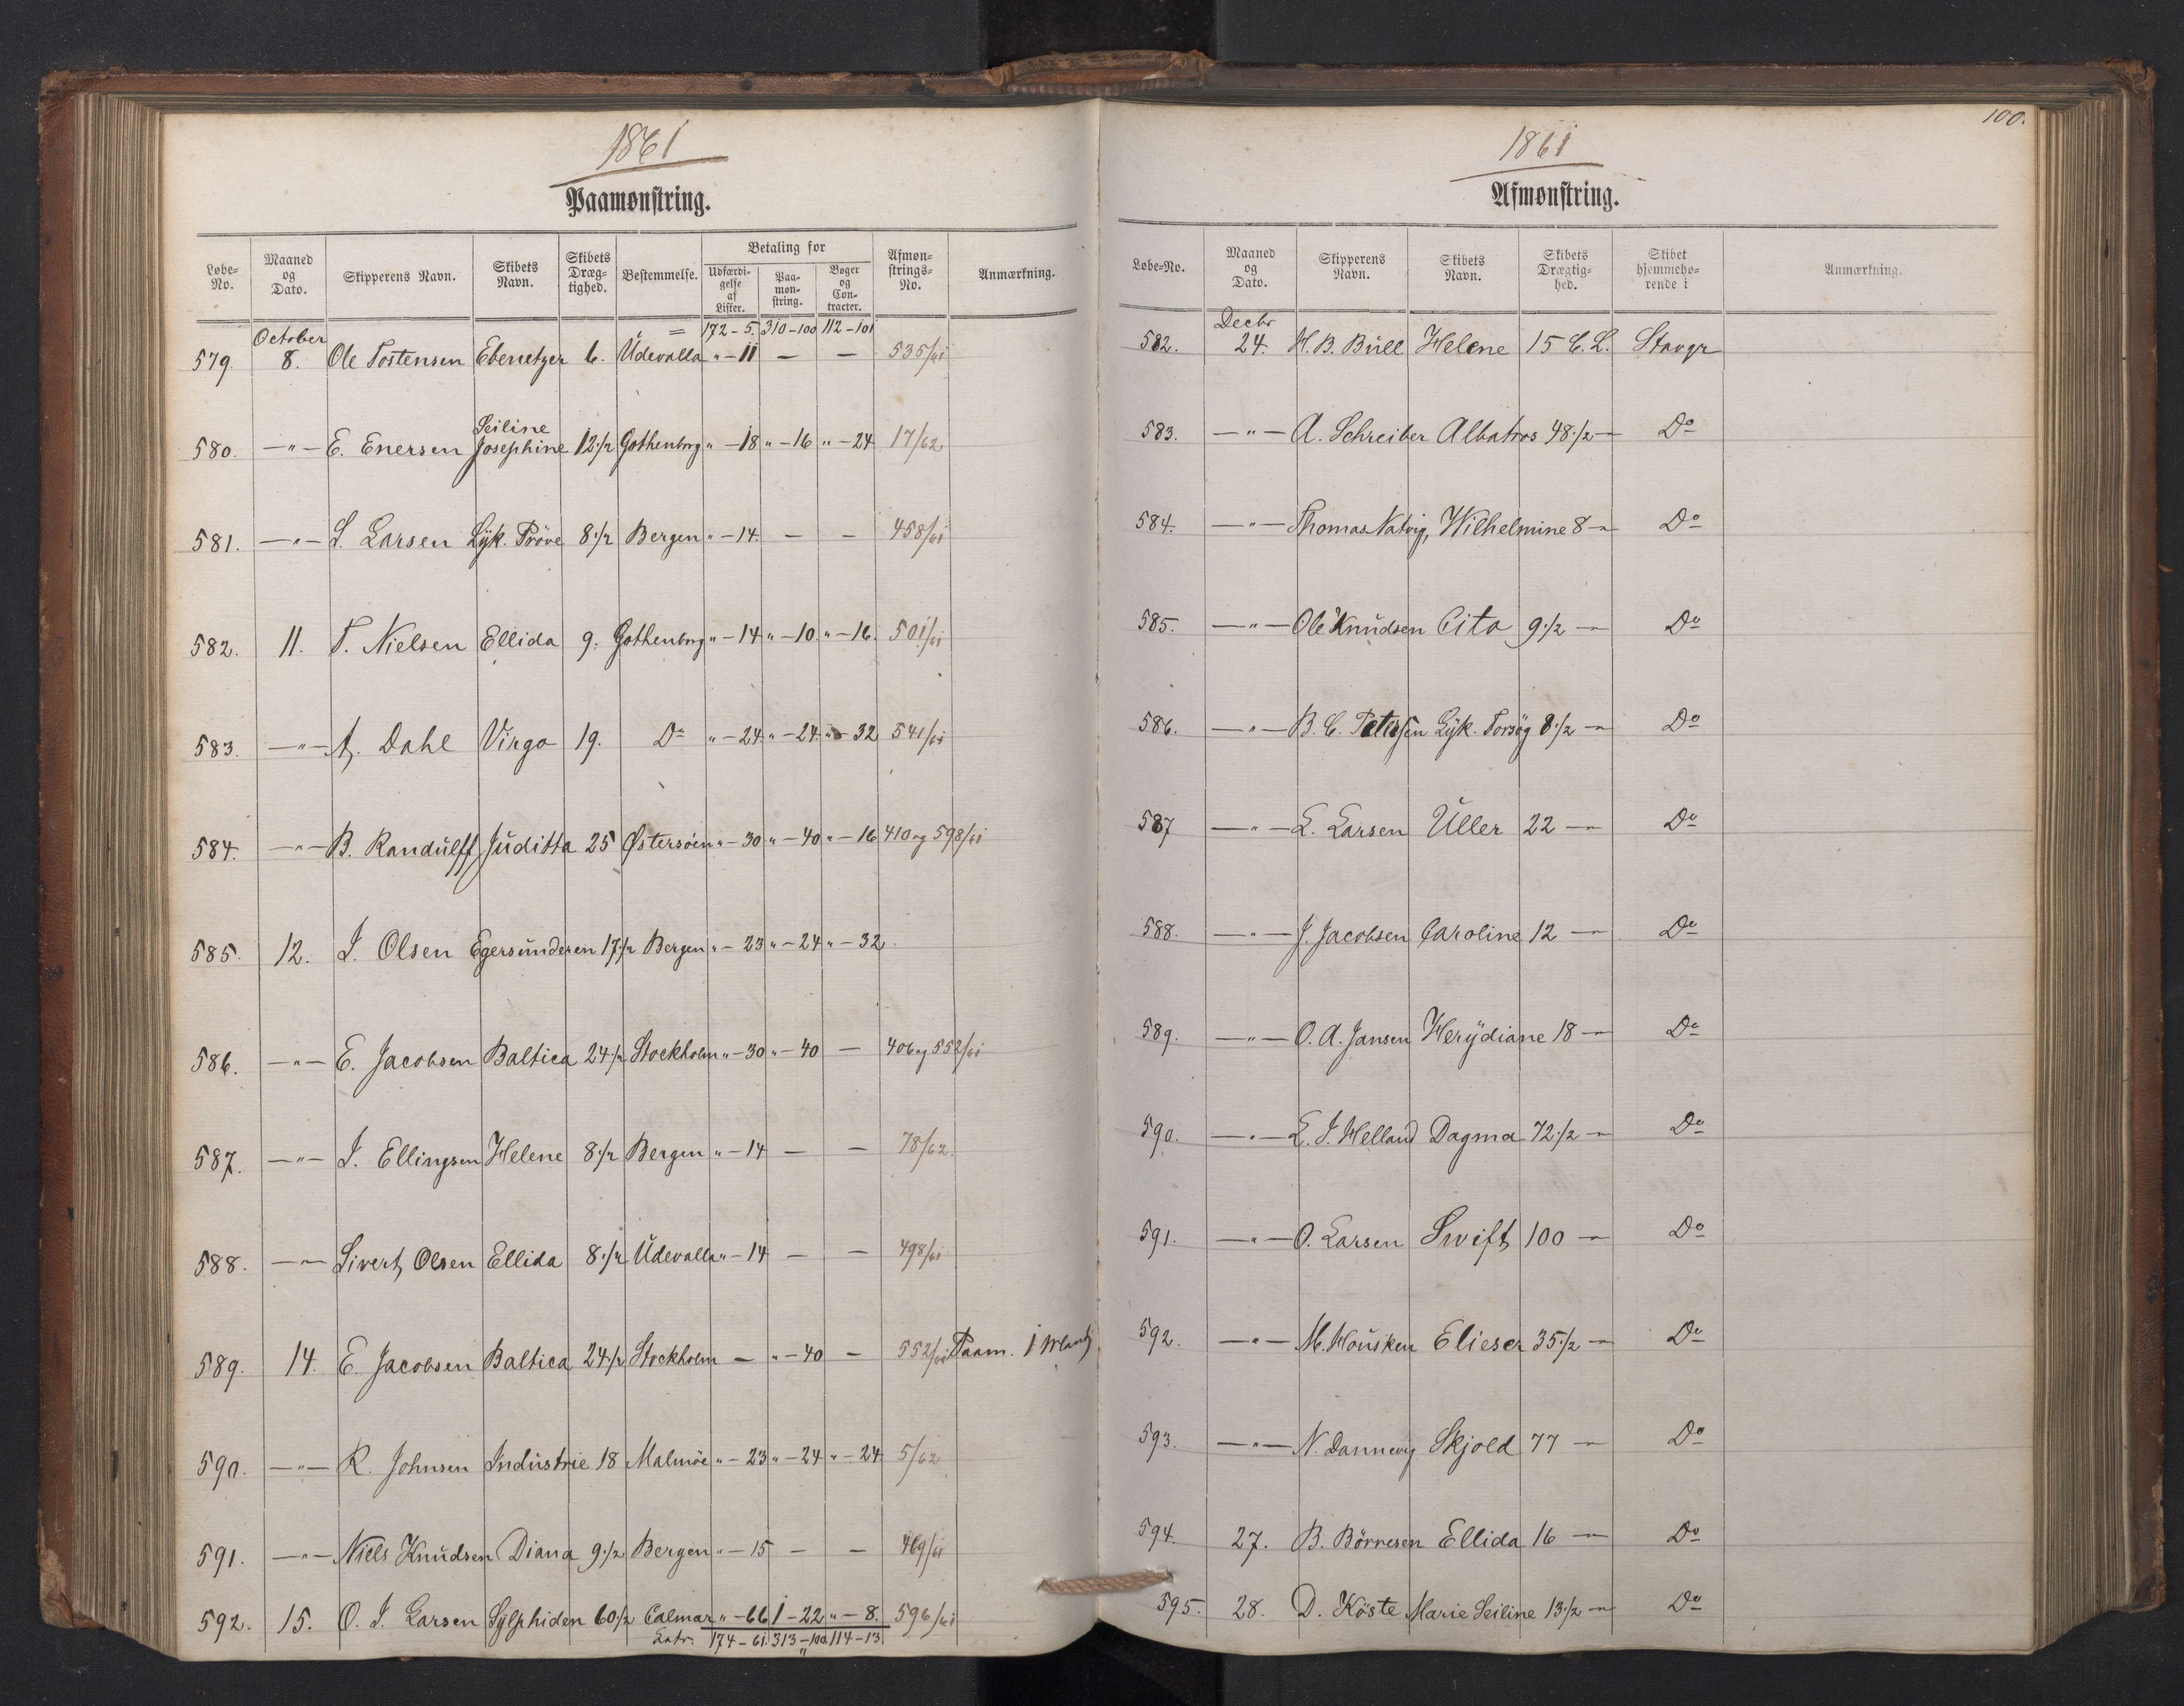 1861
Paamønstring.
Løbe-No. Maaned og Dato. Skipperens Navn. Skibets Navn. Skibets Dræg-tighed. Bestemmelse. Betaling for Udfærdi-gelse af Lister. Paa-møn-string. Bøger og Con-tracter. Afmøn-strings-No. Anmærkning.
= 172-5. 310-100 112-101
579. October 8. Ole Tostensen Ebenetzer 6. Udevalla " - 11 — — 535/61
580. —"— E. Enersen Seiline Josephine 12 1/2 Gothenborg " - 18 " - 16 " - 24 17/62
581. —"— S. Larsen Lyk. Prøve 8 1/2 Bergen " - 14. — — 458/61
582. 11. T. Nielsen Ellida 9. Gothenborg " - 14 " - 10. " - 16. 501/61
583. —"— A. Dahl Virgo 19. Do " - 24. " - 24. " - 32 541/61
584. —"— B. Randulff Juditta 25 Østersøen " - 30 " - 40 " - 16 410 og 598/61
585. 12. I. Olsen Egersunderen 17 1/2 Bergen " - 23 " - 24 " - 32.
586. —"— E. Jacobsen Baltica 24 1/2 Stockholm " - 30 " - 40 — 406 og 552/61
587. —"— I. Ellingsen Helene 8 1/2 Bergen " - 14 — — 78/62.
588. —"— Sivert Olsen Ellida 8 1/2 Udevalla " - 14 — — 498/61
589. 14. E. Jacobsen Baltica 24 1/2 Stockholm — " - 40 — 552/61 Paam. 1 Mand
590. —"— R. Johnsen Industrie 18 Malmöe " - 23 " - 24 " - 24. 5/62
591. —"— Niels Knudsen Diana 9 1/2 Bergen " - 15 — — 469/61
592. 15. O. I. Larsen Sylphiden 60 1/2 Calmar " - 66 1 - 22 " - 8. 596/61
Latr. 174-61. 313-100 114-13.
100.
1861
Afmønstring.
Løbe-No. Maaned og Dato. Skipperens Navn. Skibets Navn. Skibets Drægtig-hed. Skibet hjemmehø-rende i Anmærkning.
582. Decbr 24. H. B. Bull Helene 15 C. L. Stavgr
583. —"— A. Schreiber Albatros 48 1/2 — Do
584. —"— Thomas Natvig, Wilhelmine 8 — Do
585. —"— Ole Knudsen Cito 9 1/2 — Do
586. —"— B. C. Petersen Lyk. Forsøg 8 1/2 — Do
587 —"— L. Larsen Uller 22 — Do
588. —"— J. Jacobsen Caroline 12 — Do
589. —"— O. A. Jansen Herydiane 18 — Do
590. —"— L. I. Helland Dagma 72 1/2 — Do
591. —"— O. Larsen Swift 100 — Do
592. —"— M. Housken Elieser 35 1/2 — Do
593. —"— N. Dannevig Skjold 77 — Do
594. 27. B. Börresen Ellida 16 — Do
595. 28. D. Köste Marie Seiline 13 1/2 — Do